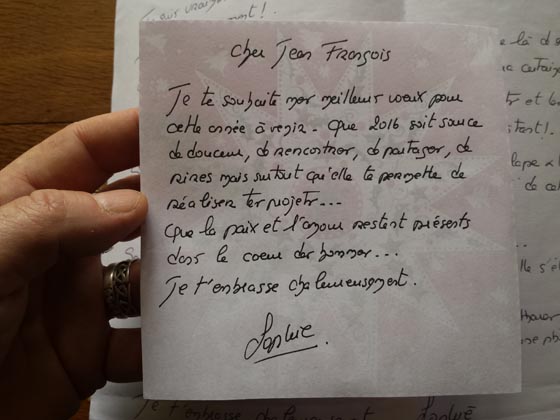 Cher Jean François
Je te souhaite mes meilleurs voeux pour
cette année à venir. Que 2016 soit source
de douceur, de rencontres, de partages, de
rires mais surtout qu'elle te permette de
réaliser tes projets...
Que la paix et l'amour restent présents
dans le coeur des hommes...
Je t'embrasse chaleureusement.
Sophie.
Je t'embrasse chaleureusement